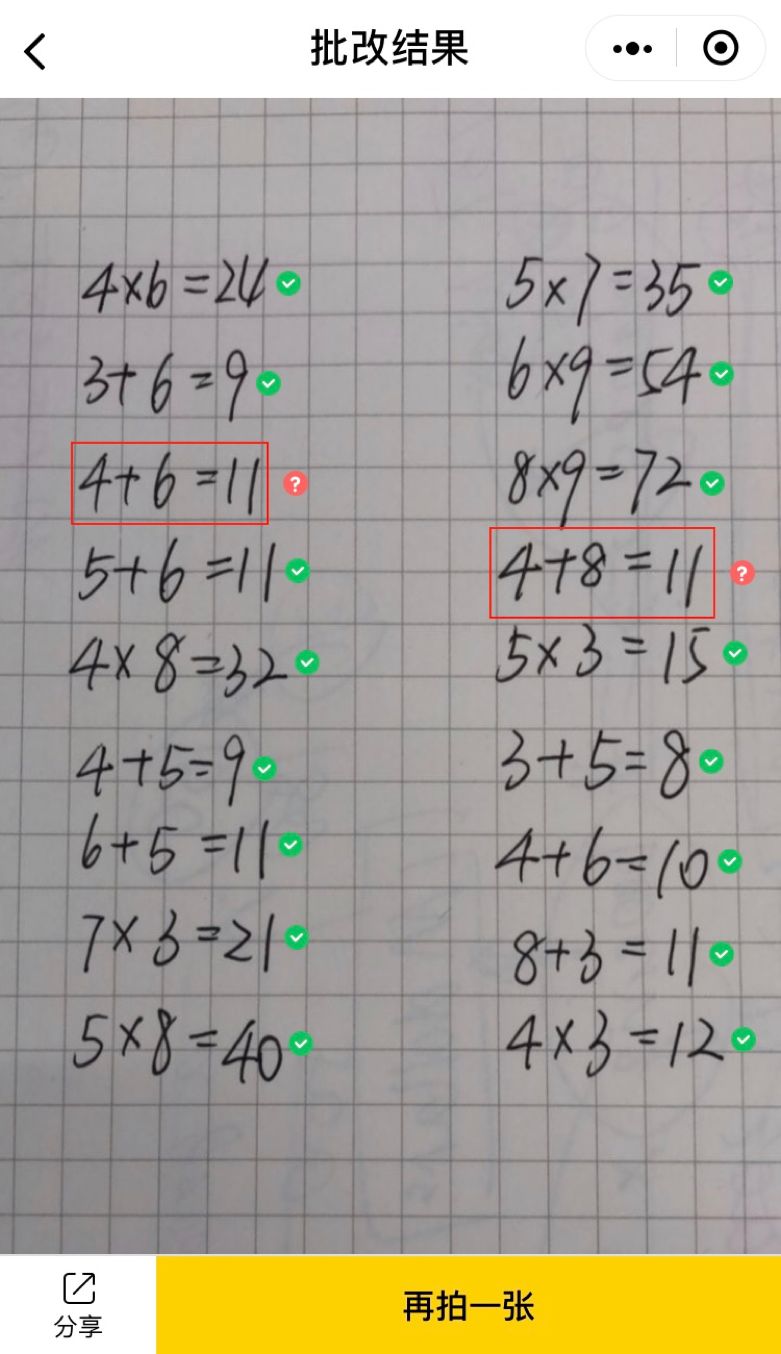 批改结果
4×6=24 5×7=35
3+6=9 6×9=54
4+6=11 ? 8×9=72
5+6=11 4+8=11 ?
4×8=32 5×3=15
4+5=9 3+5=8
6+5=11 4+6=10
7×3=21 8+3=11
5×8=40 4×3=12
分享 再拍一张